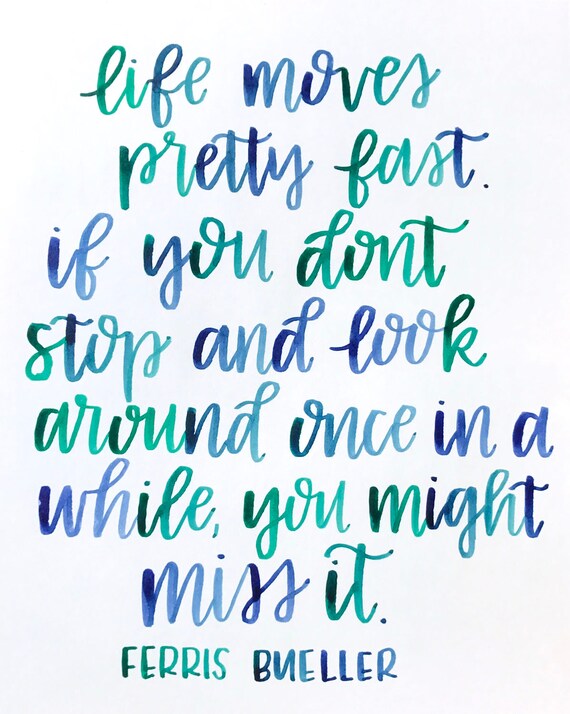 life moves
pretty fast.
if you dont
stop and look
around once in a
while, you might
miss it.
FERRIS BUELLER